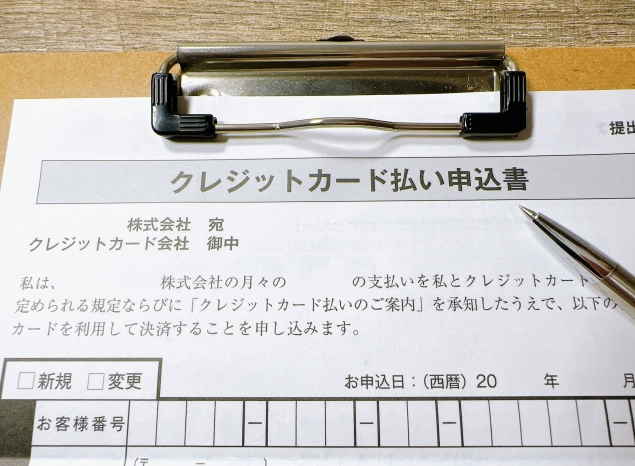 提出
クレジットカード払い申込書
株式会社 宛
クレジットカード会社 御中
私は、 株式会社の月々の の支払いを私とクレジットカード
定められる規定ならびに「クレジットカード払いのご案内」を承知したうえで、以下の
カードを利用して決済することを申し込みます。
□新規 □変更
お申込日：（西暦）20 年 月
お客様番号 ー ー ー ー
（〒 ー ）